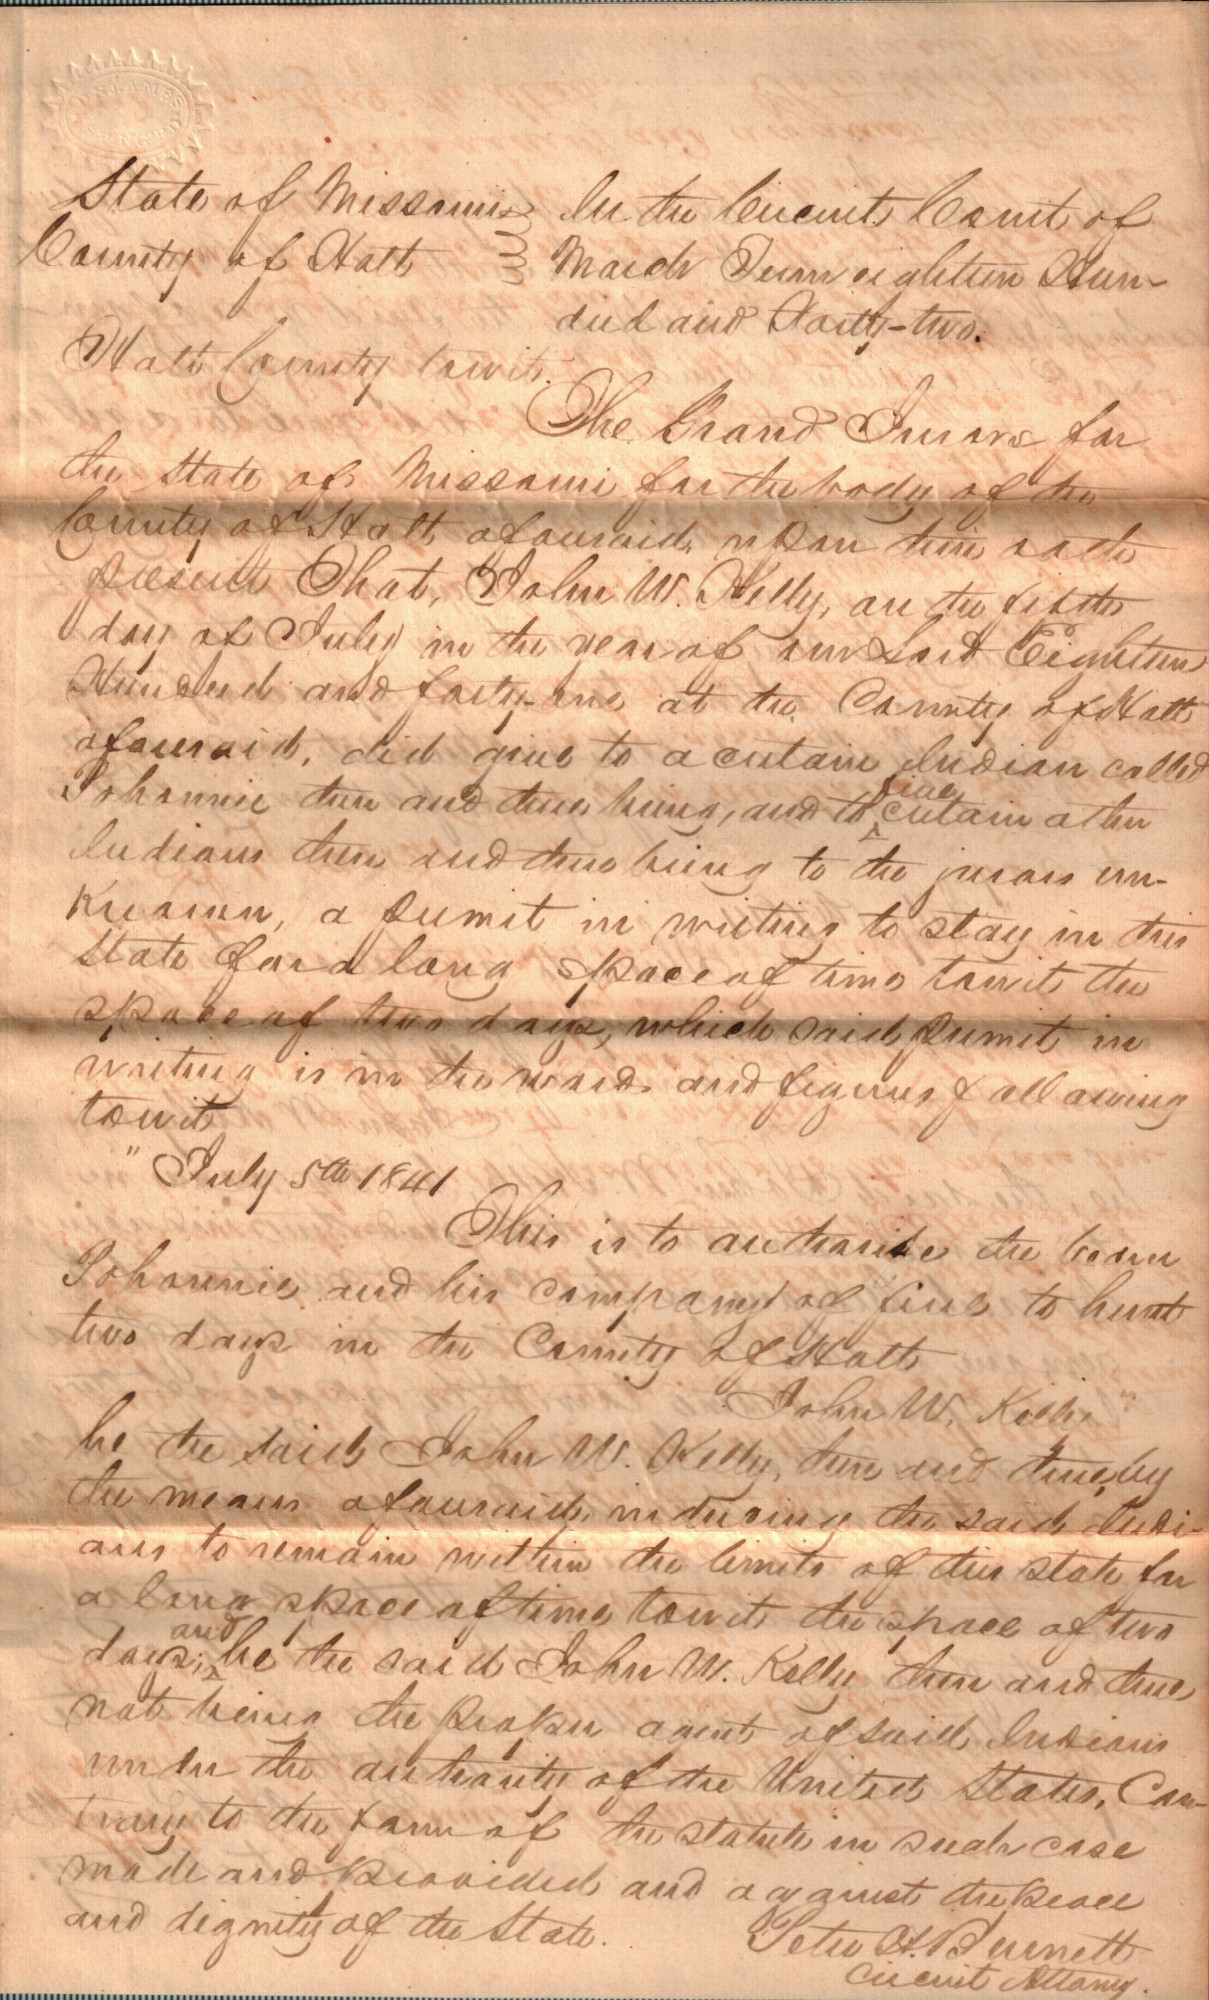 State of Missouri
County of Holt
In the Circuit Court of
March Term eighteen Hun-
dred and Forty-two.
Holt County towit.
The Grand Jurors for
the State of Missouri for the body of the
County of Holt aforesaid, upon their oath
present That, John W. Kelly, on the fifth
day of July in the year of our Lord Eighteen
Hundred and forty-one at the County of Holt
aforesaid, did give to a certain Indian called
Johonnie then and there being, and to five certain other
Indians then and there being to the jurors un-
known, a permit in writing to stay in this
State for a long space of time towit the
space of two days, which said permit in
writing is in the words and figures following
towit
"July 5th 1841
This is to authorise the bearer
Johonnie and his company of five to hunt
two days in the County of Holt
John W. Kelly"
he the said John W. Kelly, then and there, by
the means aforesaid, inducing the said Indi-
ans to remain within the limits of this state for
a long space of time towit the space of two
days; and he the said John W. Kelly then and there
not being the proper agent of said Indians
under the authority of the United States, Con-
trary to the form of the statute in such case
made and provided and against the peace
and dignity of the State.
Peter H. Burnett
Circuit Attorney.